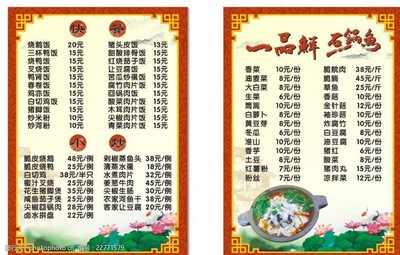 快餐
烧鹅饭 20元 猪头皮饭 15元
三杯鸭饭 15元 甜酸排骨饭 15元
烧鸭饭 15元 红烧茄子饭 15元
叉烧饭 15元 让豆腐饭 15元
鸭肾饭 15元 苦瓜炒蛋饭 15元
春卷饭 15元 腐竹肉片饭 15元
鸡亦饭 15元 回锅肉饭 15元
白切鸡饭 15元 酸菜肉片饭 15元
猪脚饭 15元 木耳肉片饭 15元
炒米粉 10元 尖椒肉片饭 15元
炒河粉 10元 青菜肉片饭 15元
小炒
脆皮烧鹅 48元/例 剁椒蒸鱼头 38元/例
脆皮烧鸭 25元/例 清蒸水蛋 20元/例
白切鸡 38元/半只 水煮肉片 32元/例
蜜汁叉烧 25元/例 姜葱牛肉 45元/例
花生猪脚煲 35元/例 尖椒生肠 30元/例
咸鱼茄子煲 25元/例 农家河鱼干 38元/例
尖椒回锅肉 28元/例 客家让豆腐 20元/例
卤水拼盘 22元/例
一品鲜 石锅鱼
香菜 10元/份 脆皖肉 38元/斤
油麦菜 10元/份 脆腩 45元/斤
大白菜 8元/份 草鱼 25元/斤
生菜 6元/份 香菇 10元/份
筒篙 10元/份 金针菇 12元/份
白萝卜 8元/份 袖珍菇 10元/份
黄豆芽 8元/份 炸腐竹 10元/份
冬瓜 6元/份 白豆腐 10元/份
淮山 10元/份 油豆腐 10元/份
香芋 10元/份 猪红 10元/份
土豆 8元/份 酸菜 8元/份
红薯粉 10元/份 猪肉丸 15元/份
粉丝 7元/份 凉拌菜 12元/份